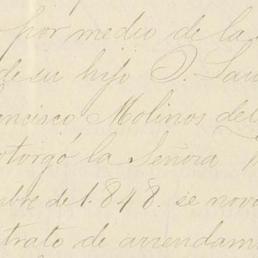 por medio de la
de su hijo D.
ncisco Molinos del
otorgó la Señora
bre de 1.848. se nov
trato de arrendam